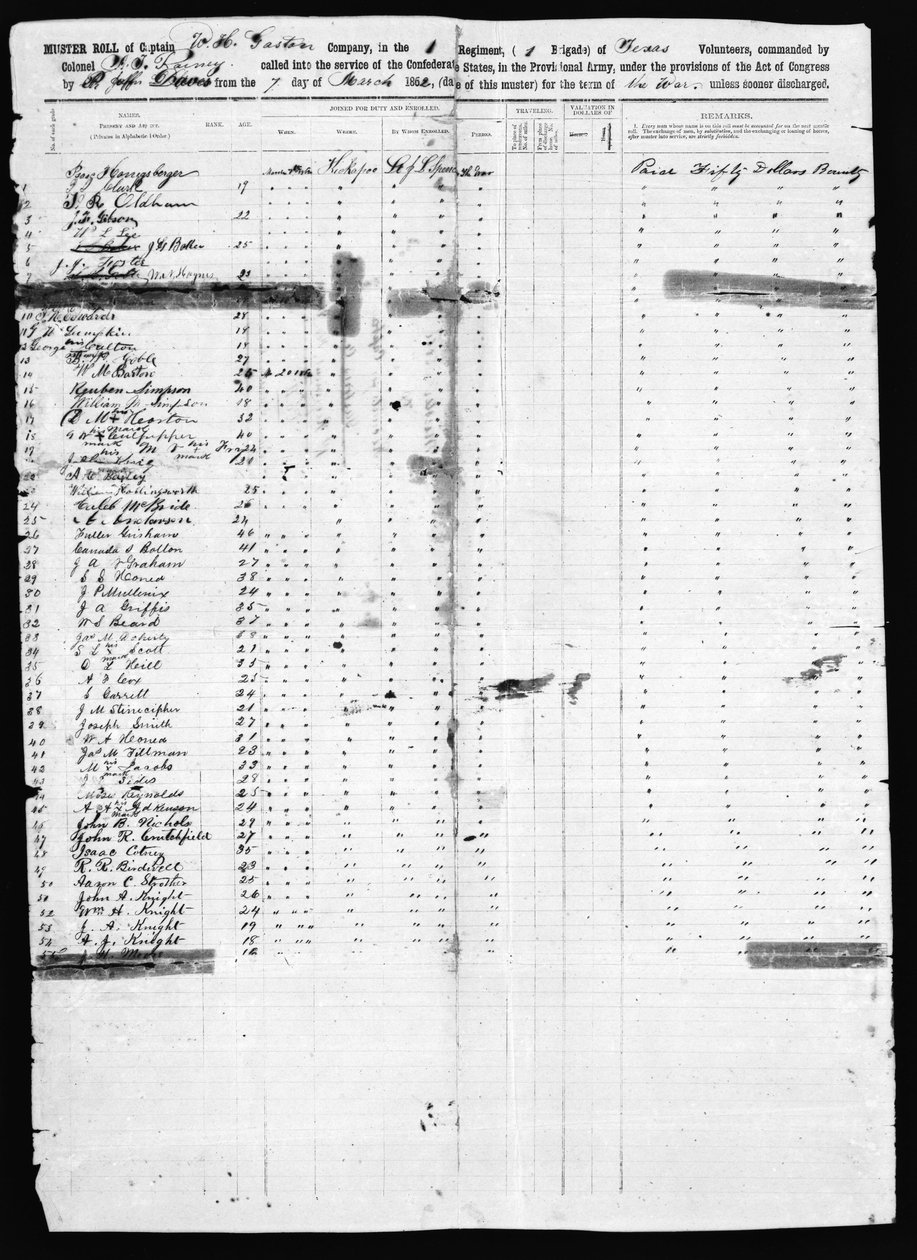 MUSTER ROLL of Captain W. H. Gaston Company, in the 1 Regiment, ( 1 Brigade) of Texas Volunteers, commanded by
Colonel A. T. Rainey called into the service of the Confederate States, in the Provisional Army, under the provisions of the Act of Congress
by Jeffn Davis from the 7 day of March 1862, (date of this muster) for the term of the War. unless sooner discharged.
No. of each grade
NAMES,
PRESENT AND ABSENT.
(Privates in Alphabetical Order)
RANK.
AGE.
JOINED FOR DUTY AND ENROLLED.
WHEN.
WHERE.
BY WHOM ENROLLED.
PERIOD.
TRAVELING.
To place of rendezvous, No. of miles
From place of discharge home. No. of mls.
VALUATION IN DOLLARS OF
Horses
REMARKS.
1. Every man whose name is on this roll must be accounted for on the next muster roll. The exchange of men, by substitution, and the exchanging or loaning of horses, after muster into service, are strictly forbidden.
Honigsberger Kickapoo Lt J L Spence The War Paid Fifty Dollars Bounty
1 Clark 19 " " " " " " "
2 S. R. Oldham " " " " " " "
3 J. H. Gibson 22 " " " " " " "
4 W L Lye " " " " " " "
5 J G Baker 25 " " " " " " "
6 J. J. Foster " " " " " " "
7 W. A. Haynes 23 " " " " " "
10 Edwards 28 " " " " " " "
11 G W Lumpkin 18 " " " " " " "
12 George his Coulton 18 " " " " " " "
13 mark Goble 27 " " " " " " "
14 W M Barton 25 " 20 " " " " " " " "
15 Reuben Simpson 40 " " " " " " "
16 William M. Simpson 18 " " " " " " "
17 D M his x Hearton 32 " " " " " " "
18 mark his x Culpepper 40 " " " " " " "
19 mark his mark 24 " " " " " " "
21 " " " " " "
22 A. C. Bailey " " " " " " "
William Hollingsworth 25 " " " " " " "
24 Caleb McBride 26 " " " " " " "
25 24 " " " " " " "
26 Fuller Grisham 46 " " " " " " " " " "
27 Canada S Bolton 41 " " " " " " " " " "
28 J A Graham 27 " " " " " " " " " "
29 S S Honea 38 " " " " " " " " " "
30 J P Mullenix 24 " " " " " " " " " "
31 J A Griffis 35 " " " " " " " " " "
32 W S Beard 37 " " " " " " " " " "
33 Jas M Doherty 38 " " " " " " " " " "
34 S L his x Scott 21 " " " " " " " " " "
35 D mark L Neill 35 " " " " " " " " " "
36 A F Cox 25 " " " " " " " " "
37 S Garrett 24 " " " " " " " " " "
38 J M Stinecipher 21 " " " " " " " " " "
39 Joseph Smith 27 " " " " " " " " " "
40 W A Honea 31 " " " " " " " " " "
41 Jas M Tillman 23 " " " " " " " " " "
42 M his x Jacobs 33 " " " " " " " " " "
43 mark Fides 28 " " " " " " " " " "
44 Mose Reynolds 25 " " " " " " " " " "
45 A A his x Adkinson 24 " " " " " " " " " "
46 mark John B. Nichols 29 " " " " " " " " " "
47 John R. Crutchfield 27 " " " " " " " " " "
48 Isaac Cotney 35 " " " " " " " " " "
49 R. R. Birdwell 23 " " " " " " " " " "
50 Aaron C. Strother 25 " " " " " " " " " "
50 John A. Knight 26 " " " " " " " " " "
52 Wm H. Knight 24 " " " " " " " " " "
53 J. A. Knight 19 " " " " " " " " " "
54 A. J. Knight 18 " " " " " " " " " "
55 J. H. 18 " " " " " " " " "